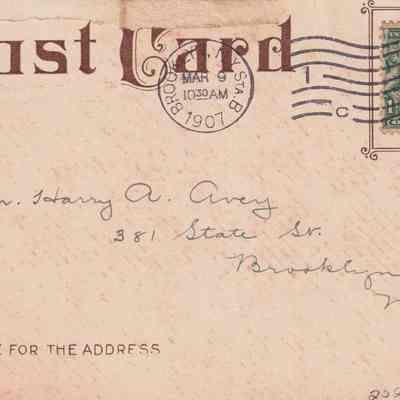 ost Card
BROOKLYN, N.Y. STA. B
MAR 9
10 30 AM
1907
1
C
r. Harry A. Avery
381 State St.
Brooklyn
FOR THE ADDRESS